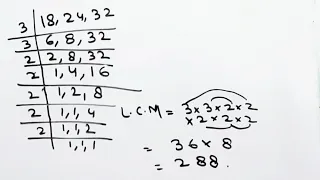 3 | 18, 24, 32
3 | 6, 8, 32
2 | 2, 8, 32
2 | 1, 4, 16
2 | 1, 2, 8
2 | 1, 1, 4
2 | 1, 1, 2
1, 1, 1
L.C.M = 3×3×2×2
×2×2×2
= 36×8
= 288.